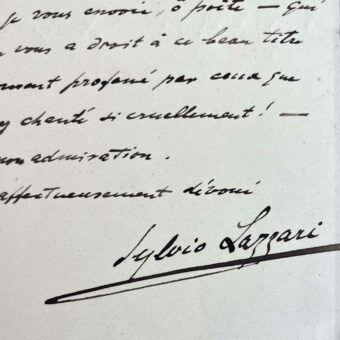 je vous envoie, ô poète – qui
vous a droit à ce beau titre
profané par ceux que
chanté si cruellement! –
mon admiration.
affectueusement dévoué
Sylvio Lazzari